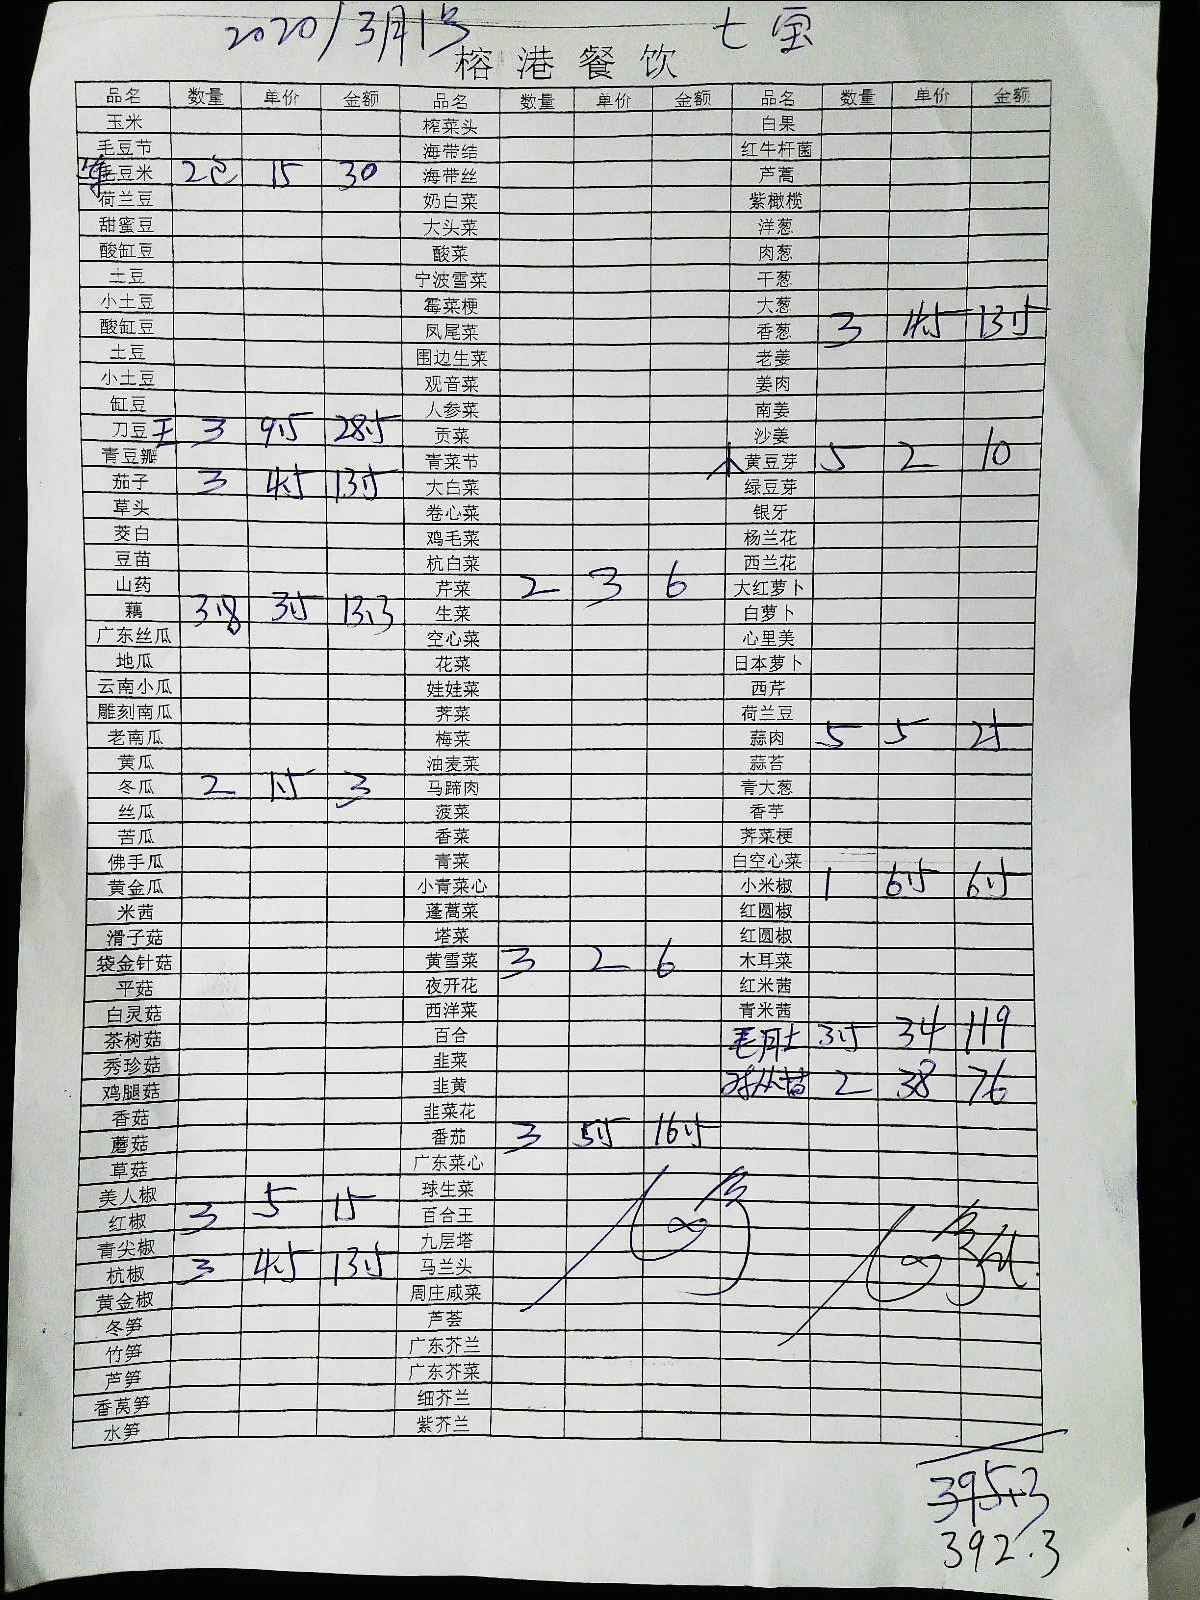 2020/3月1号 七宝
榕港餐饮
品名 数量 单价 金额 品名 数量 单价 金额 品名 数量 单价 金额
玉米 榨菜头 白果
毛豆节 海带结 红牛杆菌
毛豆米 2包 15 30 海带丝 芦蒿
荷兰豆 奶白菜 紫橄榄
甜蜜豆 大头菜 洋葱
酸缸豆 酸菜 肉葱
土豆 宁波雪菜 干葱
小土豆 霉菜梗 大葱
酸缸豆 凤尾菜 香葱 3 4.5 13.5
土豆 围边生菜 老姜
小土豆 观音菜 姜肉
缸豆 人参菜 南姜
刀豆王 3 9.5 28.5 贡菜 沙姜
青豆瓣 青菜节 黄豆芽 5 2 10
茄子 3 4.5 13.5 大白菜 绿豆芽
草头 卷心菜 银牙
茭白 鸡毛菜 杨兰花
豆苗 杭白菜 西兰花
山药 芹菜 2 3 6 大红萝卜
藕 3.8 3.5 13.3 生菜 白萝卜
广东丝瓜 空心菜 心里美
地瓜 花菜 日本萝卜
云南小瓜 娃娃菜 西芹
雕刻南瓜 荠菜 荷兰豆
老南瓜 梅菜 蒜肉 5 5 25
黄瓜 油麦菜 蒜苔
冬瓜 2 1.5 3 马蹄肉 青大葱
丝瓜 菠菜 香芋
苦瓜 香菜 荠菜梗
佛手瓜 青菜 白空心菜
黄金瓜 小青菜心 小米椒 1 6.5 6.5
米茜 蓬蒿菜 红圆椒
滑子菇 塔菜 红圆椒
袋金针菇 黄雪菜 3 2 6 木耳菜
平菇 夜开花 红米茜
白灵菇 西洋菜 青米茜
茶树菇 百合 毛肚 3.5 34 119
秀珍菇 韭菜 2 38 76
鸡腿菇 韭黄
香菇 韭菜花
蘑菇 番茄 3 5.5 16.5
草菇 广东菜心
美人椒 球生菜
红椒 3 5 15 百合王
青尖椒 九层塔
杭椒 3 4.5 13.5 马兰头
黄金椒 周庄咸菜
冬笋 芦荟
竹笋 广东芥兰
芦笋 广东芥菜
香莴笋 细芥兰
水笋 紫芥兰
395.3
392.3